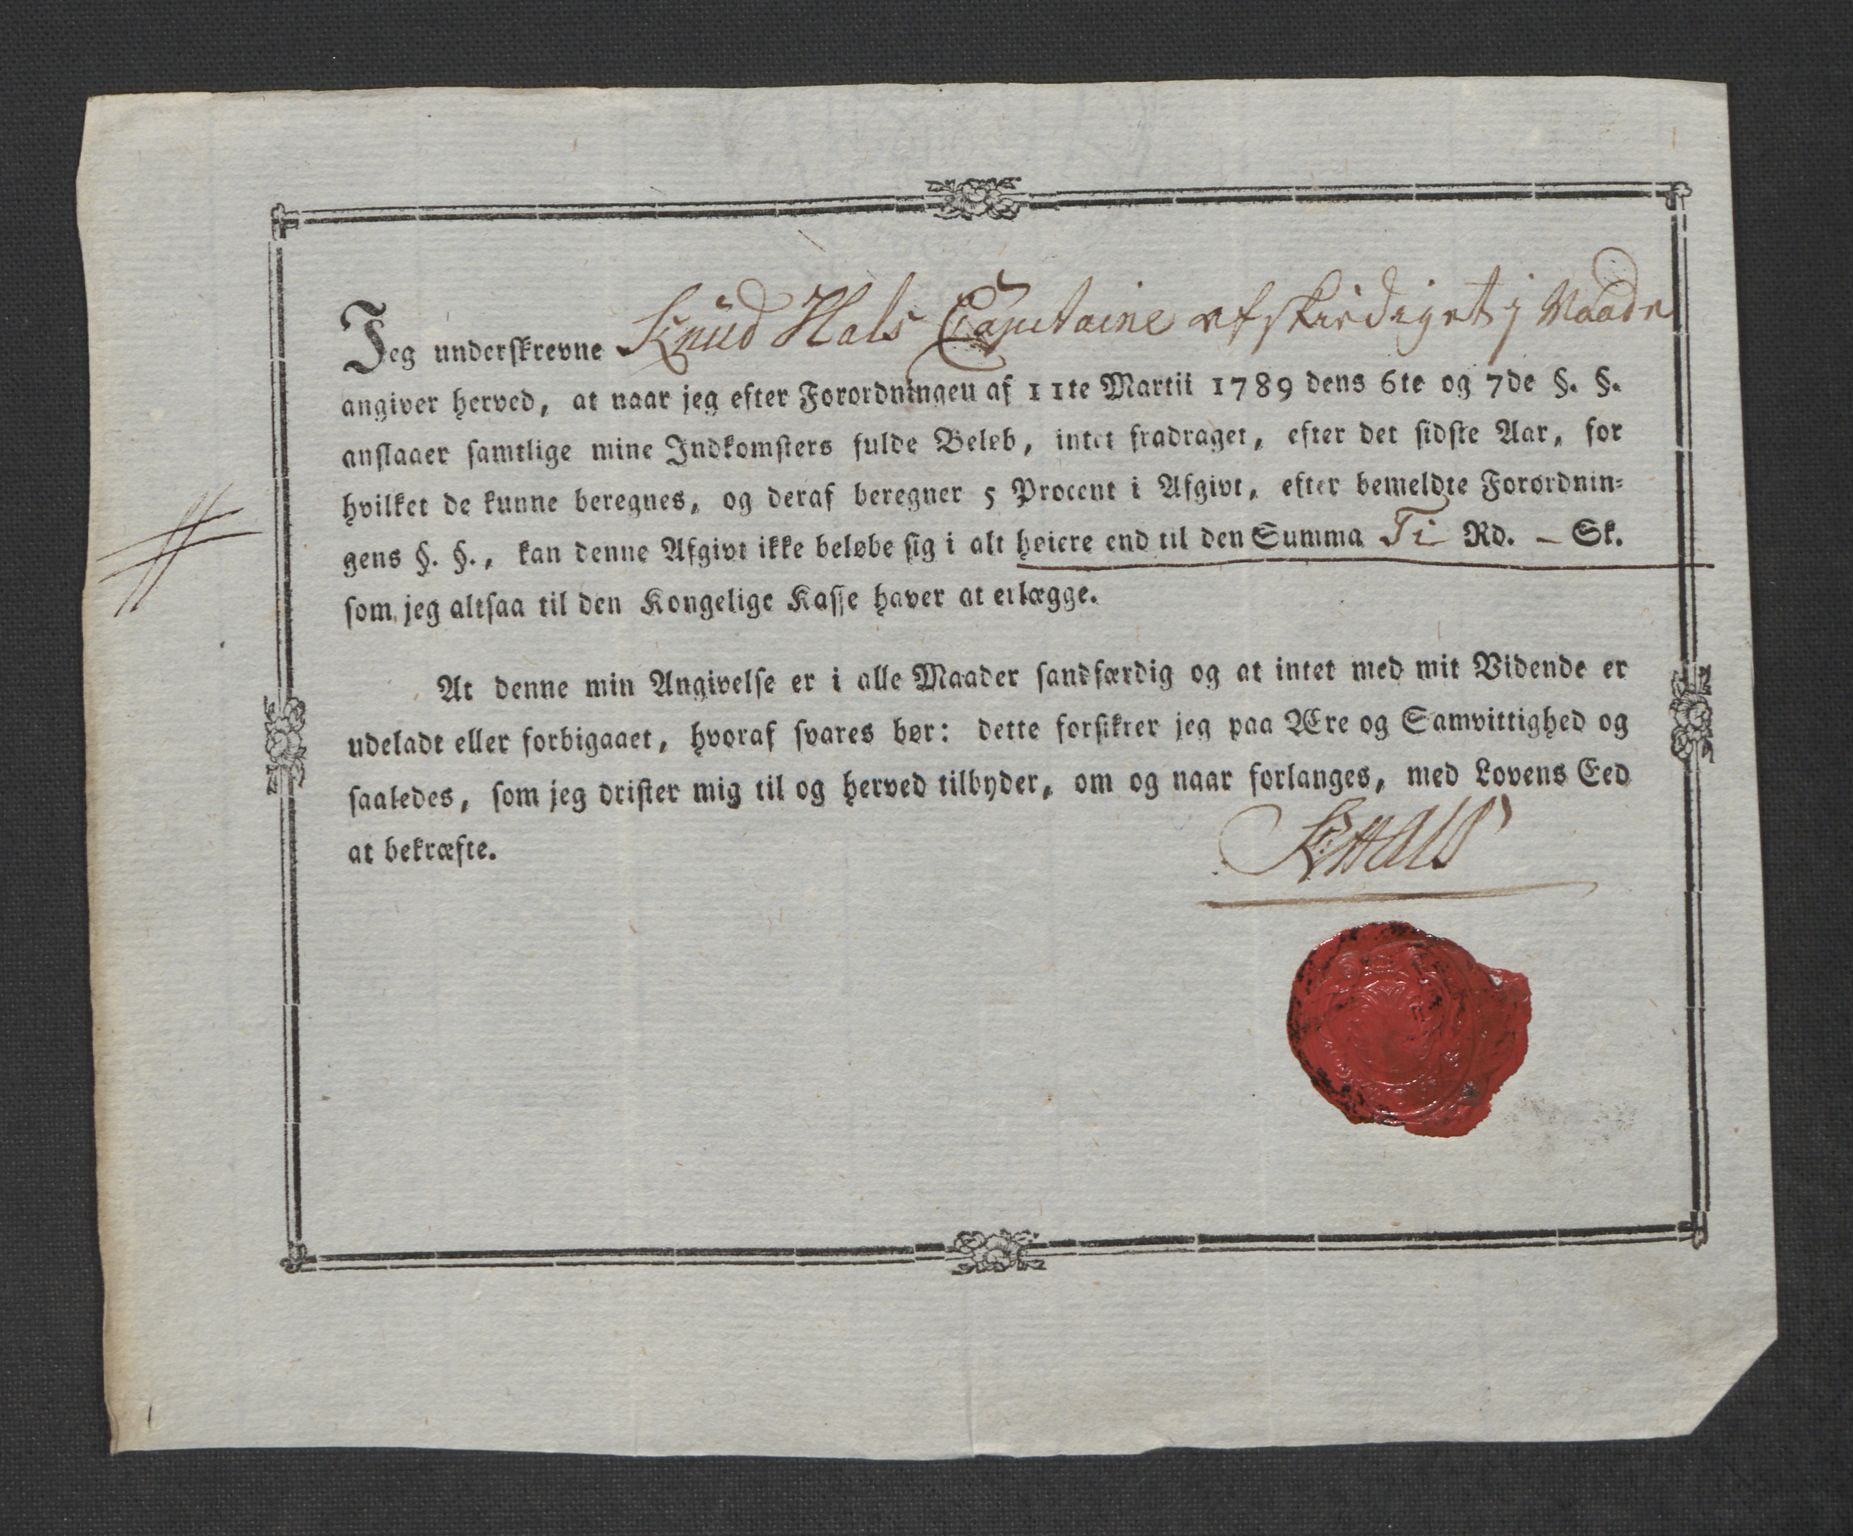 Jeg underskrevne Knud Hals Capitaine afskiediget j Naade
angiver herved, at naar jeg efter Forordningen af 11te Martii 1789 dens 6te og 7de §. §.
anslaaer samtlige mine Indkomsters fulde Beløb, intet fradraget, efter det sidste Aar, for
hvilket de kunne beregnes, og deraf beregner 5 Procent i Afgivt, efter bemeldte Forordnin=
gens §. §., kan denne Afgivt ikke beløbe sig i alt høiere end til den Summa Ti Rd. – Sk.
som jeg altsaa til den Kongelige Kasse haver at erlægge.
At denne min Angivelse er i alle Maader sandfærdig og at intet med mit Vidende er
udeladt eller forbigaaet, hvoraf svares bør: dette forsikrer jeg paa Ære og Samvittighed og
saaledes, som jeg drister mig til og herved tilbyder, om og naar forlanges, med Lovens Eed
at bekræfte.
K: Hals